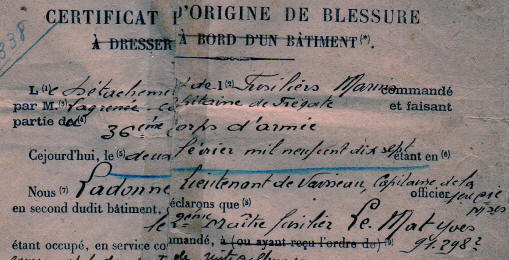 838
CERTIFICAT D'ORIGINE DE BLESSURE
À DRESSER À BORD D'UN BÂTIMENT (*).
L (1) e Détachement de l (2) Fusiliers Marins commandé
par M. (3) Lagrenée capitaine de Frégate et faisant
partie de (4)
36ème corps d'armée
Cejourd'hui, le (5) deux février mil neuf cent dix sept étant en (6)
Nous (7) Ladonne lieutenant de Vaisseau, Capitaine de la officier
en second dudit bâtiment, déclarons que (8)
le 2ème Maître fusilier Le Mat Yves
étant occupé, en service commandé, à (ou ayant reçu l'ordre de) (9) 97.298 2